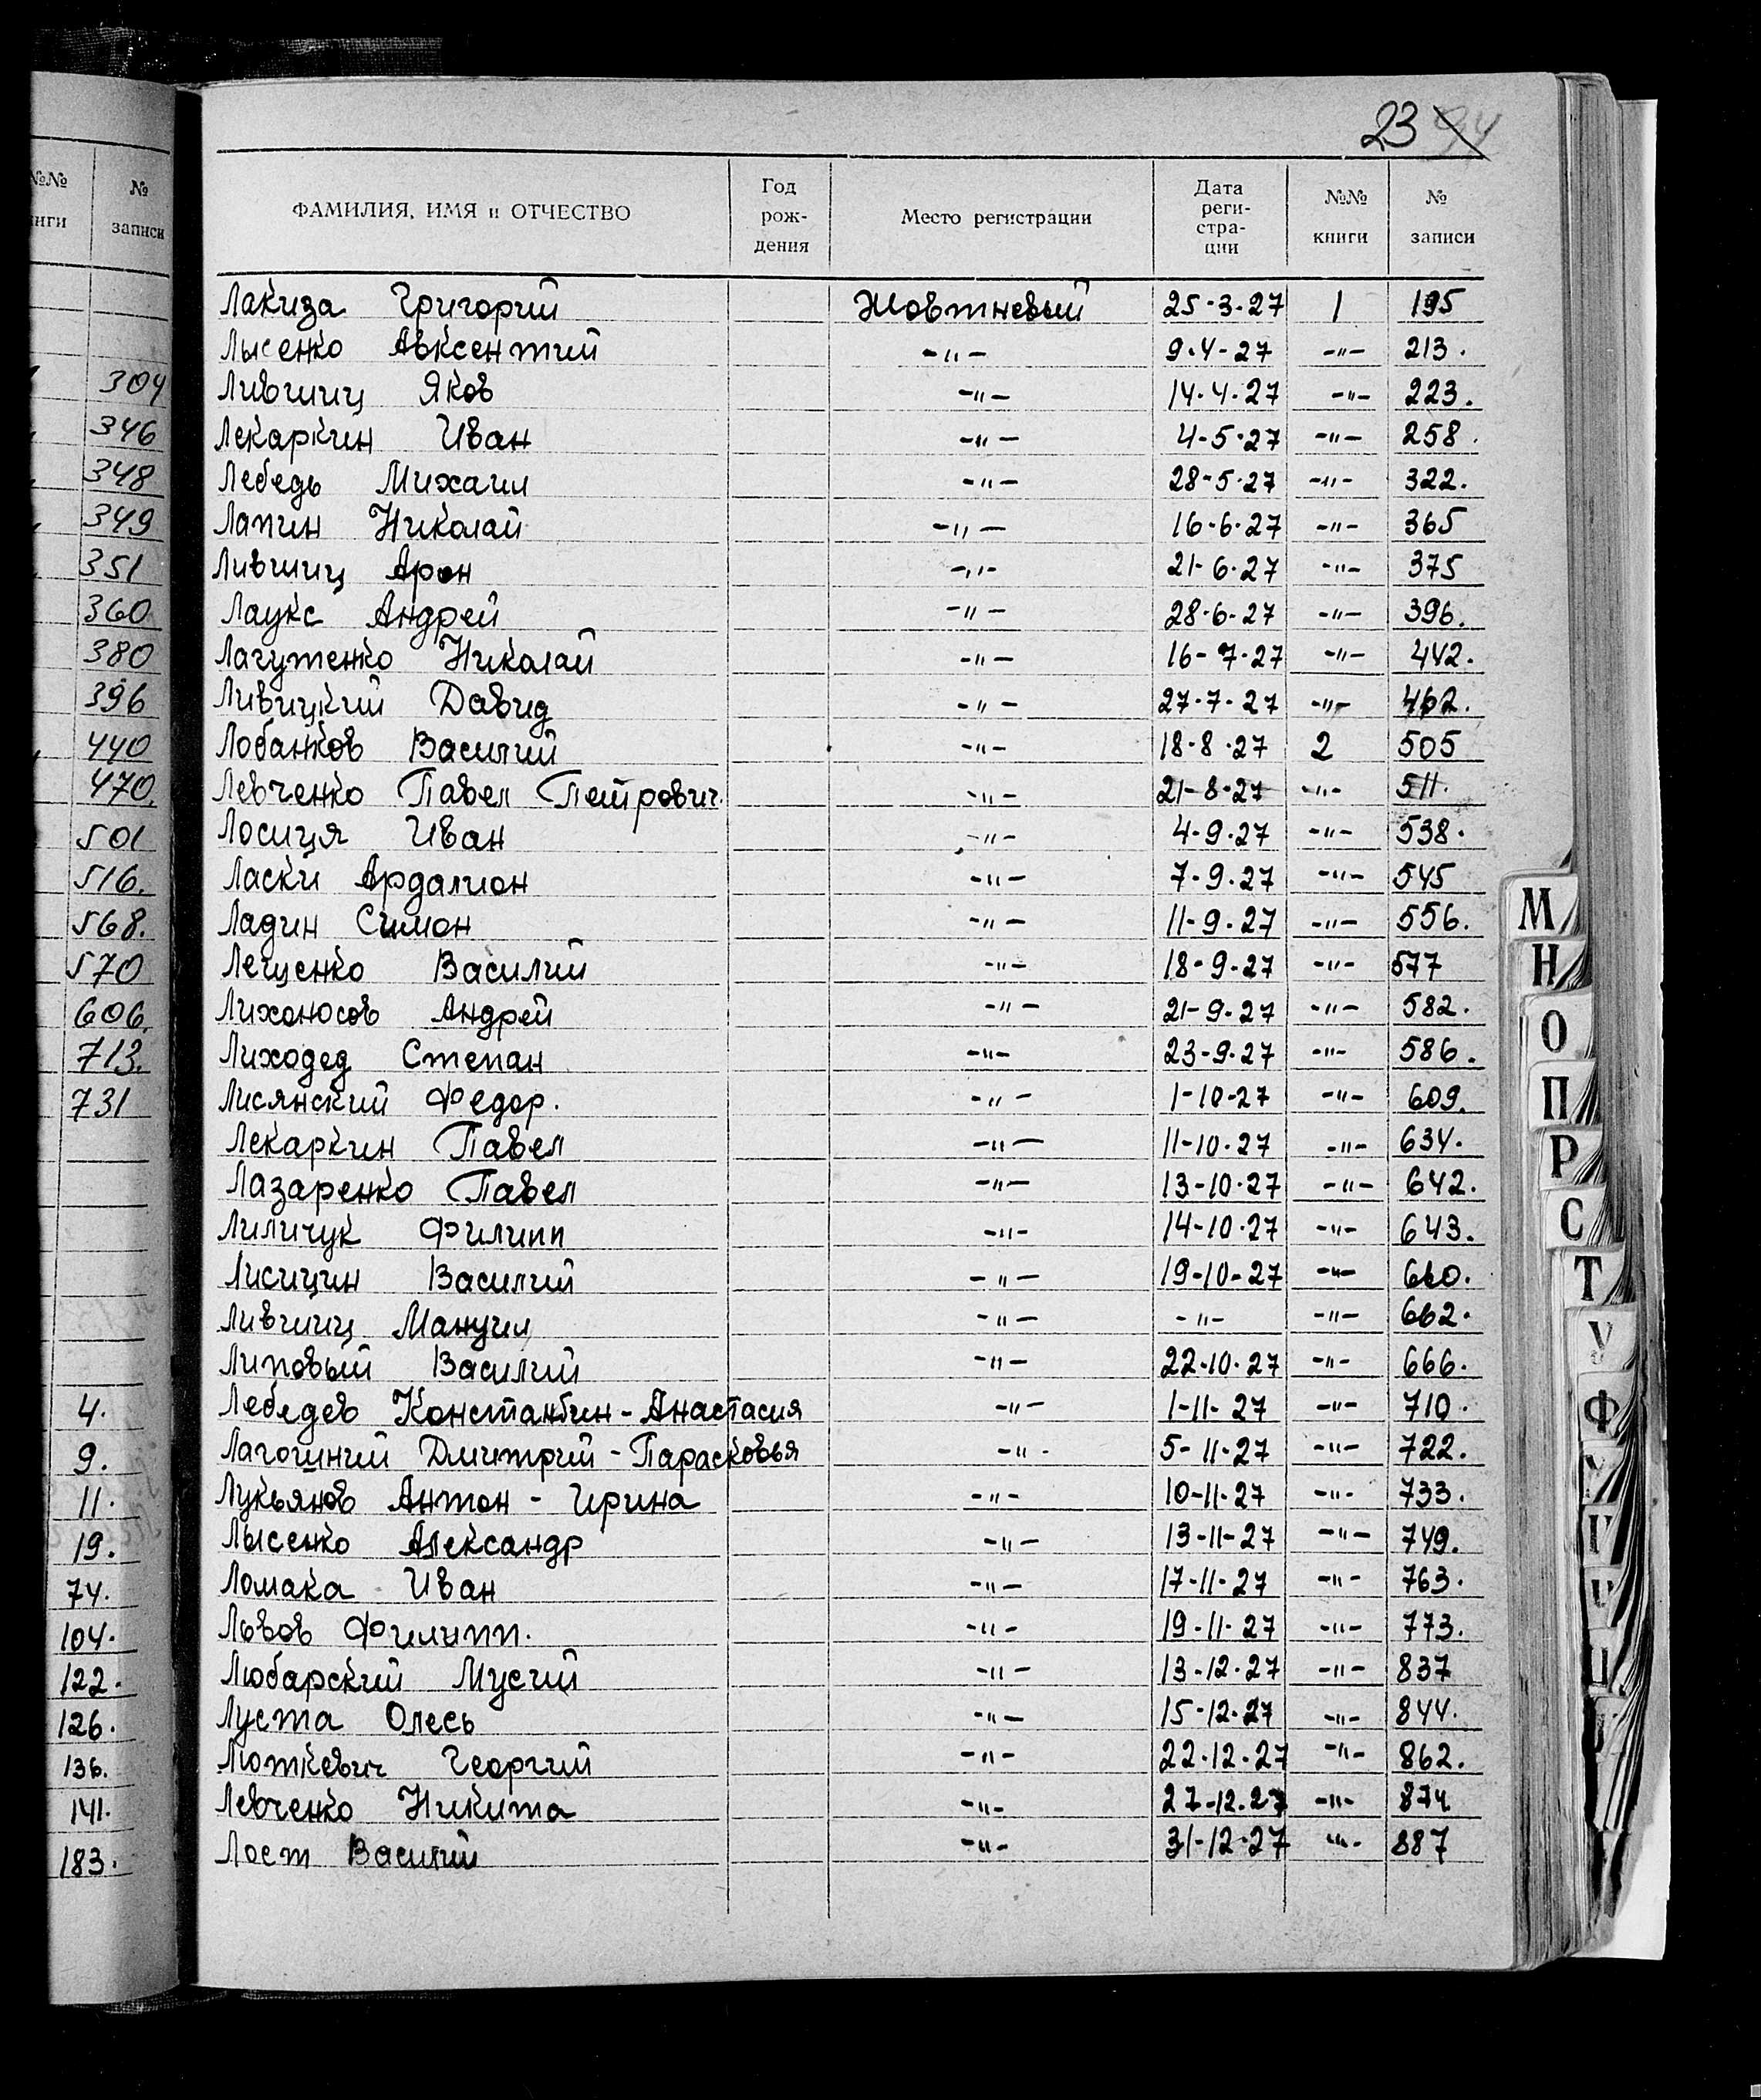 23 94
ФАМИЛИЯ, ИМЯ и ОТЧЕСТВО Год рож- дения Место регистрации Дата реги- стра- ции №№ книги № записи
Лакиза Григорий Жовтневый 25-3-27 1 195
Лысенко Авксентий -"- 9.4-27 -"- 213.
Лившиц Яков -"- 14.4.27 -"- 223.
Лекаркин Иван -"- 4-5-27 -"- 258.
Лебедь Михаил -"- 28-5-27 -"- 322.
Лапин Николай -"- 16-6-27 -"- 365
Лившиц Арон -"- 21-6-27 -"- 375
Лаукс Андрей -"- 28-6-27 -"- 396.
Лагутенко Николай -"- 16-7-27 -"- 442.
Ливицкий Давид -"- 27-7-27 -"- 462.
Лобанков Василий -"- 18-8-27 2 505
Левченко Павел Петрович. -"- 21-8-27 -"- 511.
Лосиця Иван -"- 4-9-27 -"- 538.
Ласки Ардалион -"- 7-9-27 -"- 545
Ладин Симон -"- 11-9-27 -"- 556.
Лещенко Василий -"- 18-9-27 -"- 577
Лихоносов Андрей -"- 21-9-27 -"- 582.
Лиходед Степан -"- 23-9-27 -"- 586.
Лисянский Федор. -"- 1-10-27 -"- 609.
Лекаркин Павел -"- 11-10-27 -"- 634.
Лазаренко Павел -"- 13-10-27 -"- 642.
Лиличук Филипп -"- 14-10-27 -"- 643.
Лисицин Василий -"- 19-10-27 -"- 660.
Лившиц Мануил -"- -"- -"- 662.
Липовый Василий -"- 22-10-27 -"- 666.
Лебедев Константин - Анастасия -"- 1-11-27 -"- 710.
Дмитрий - Парасковья -"- 5-11-27 -"- 722.
Лукьянов Антон - Ирина -"- 10-11-27 -"- 733.
Лысенко Александр -"- 13-11-27 -"- 749.
Ломака Иван -"- 17-11-27 -"- 763.
Львов Филипп. -"- 19-11-27 -"- 773.
Любарский Мусий -"- 13-12-27 -"- 837
Луста Олесь -"- 15-12-27 -"- 844.
Люткевич Георгий -"- 22-12-27 -"- 862.
Левченко Никита -"- 27-12-27 -"- 874
Лост Василий -"- 31-12-27 -"- 887
№№ ниги № записи
304
346
348
349
351
360
380
396
440
470.
501
516.
568.
570
606.
713.
731
4.
9.
11.
19.
74.
104.
122.
126.
136.
141.
183.
М
Н
О
П
Р
С
Т
У
Ф